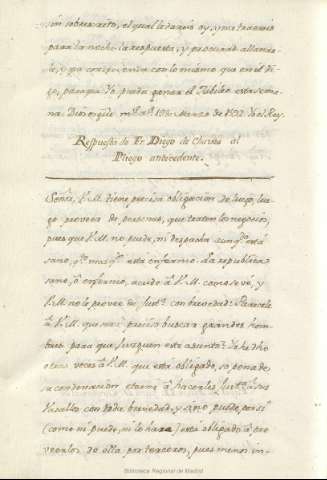 sin sobrescrito, el qual la daria oy, y me traeria
para la noche la respuesta, y procurad allanar
y con lo mismo que en él di-
go, paraque Yo pueda ganar el Jubileo esta sema-
na. Dios os guíe, m.s a.s 10 de Marzo de Yo el Rey.
Respuesta de Fr. Diego de Chaves al
Pliego antecedente.
Señor. V.M. tiene precisa obligacion de luego, lue-
go proveer de personas, que traten los negocios,
pues que V.M. no puede, ni despacha aunq.e está
sano, q.to mas q.do esta enfermo. La republica
sano, ò enfermo, acude à V.M. como se vé, y
V.M. no le provee de Just.a con brevedad. Parecele
à V.M. que será preciso buscar grandes hom-
bres para que juzguen este asunto: Ya he dho
otras veces à V.M. que está obligado, so pena de
su condenacion eterna à hacerles Just.a à sus
Vasallos con toda brevedad, y si no puede por si
(como ni puede, ni lo hara) está obligado à pro-
veerlos de ella por terceros, pues menos in-
Biblioteca Regional de Madrid